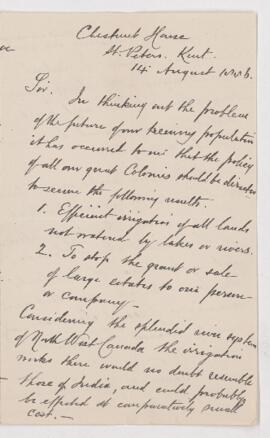 Chestnut House
St. Peters. Kent.
14 August 1886.
Sir.
In thinking out the problem
of the future of our teeming population
it has occurred to me that the policy
of all our great Colonies should be directed
to secure the following results.
1. Efficient irrigation of all lands
not watered by lakes or rivers.
2. To stop the grant or sale
of large estates to one person
or company—
Considering the splendid river system
of North West Canada the irrigation
works there would no doubt resemble
those of India, and could probably
be effected at comparatively small
cost.—